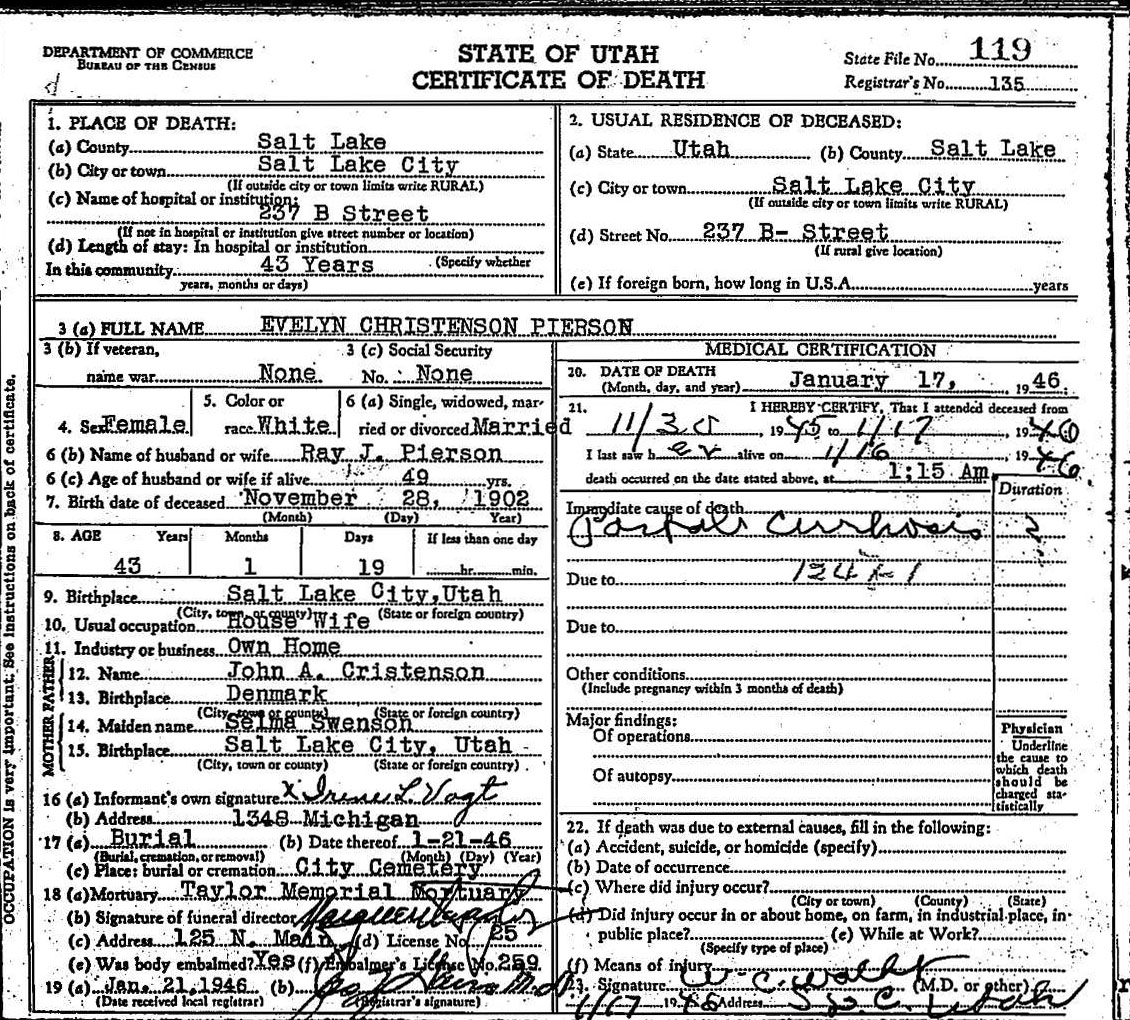 DEPARTMENT OF COMMERCE
BUREAU OF THE CENSUS
STATE OF UTAH
CERTIFICATE OF DEATH
State File No. 119
Registrar's No. 135
1. PLACE OF DEATH:
(a) County Salt Lake
(b) City or town Salt Lake City
(If outside city or town limits write RURAL)
(c) Name of hospital or institution:
237 B Street
(If not in hospital or institution give street number or location)
(d) Length of stay: In hospital or institution
In this community 43 Years (Specify whether
years, months or days)
2. USUAL RESIDENCE OF DECEASED:
(a) State Utah (b) County Salt Lake
(c) City or town Salt Lake City
(If outside city or town limits write RURAL)
(d) Street No. 237 B- Street
(If rural give location)
(e) If foreign born, how long in U.S.A. years
3 (a) FULL NAME EVELYN CHRISTENSON PIERSON
3 (b) If veteran, 3 (c) Social Security
name war None No. None
5. Color or 6 (a) Single, widowed, mar-
4. Sex Female race White ried or divorced Married
6 (b) Name of husband or wife Ray J. Pierson
6 (c) Age of husband or wife if alive 49 yrs.
7. Birth date of deceased November 28, 1902
(Month) (Day) Year)
8. AGE Years Months Days If less than one day
43 1 19 hr. min.
9. Birthplace Salt Lake City, Utah
(City, town, or county) (State or foreign country)
10. Usual occupation House Wife
11. Industry or business Own Home
FATHER
12. Name John A. Cristenson
13. Birthplace Denmark
(City, town or county) (State or foreign country)
MOTHER
14. Maiden name Selma Swenson
15. Birthplace Salt Lake City, Utah
(City, town or county) (State or foreign country)
16 (a) Informant's own signature x Irene L. Vogt
(b) Address 1348 Michigan
17 (a) Burial (b) Date thereof 1-21-46
(Burial, cremation, or removal) (Month) (Day) (Year)
(c) Place: burial or cremation City Cemetery
18 (a) Mortuary Taylor Memorial Mortuary
(b) Signature of funeral director
(c) Address 125 N. Main (d) License No. 25
(e) Was body embalmed? Yes (f) Embalmer's License No. 259
19 (a) Jan. 21, 1946 (b) M.D.
(Date received local registrar) (Registrar's signature)
MEDICAL CERTIFICATION
20. DATE OF DEATH
(Month, day, and year) January 17, 1946.
21. I HEREBY CERTIFY, That I attended deceased from
11/30 1945 to 1/17 1946
I last saw h er alive on 1/16 1946
death occurred on the date stated above, at 1:15 Am
Duration
Immediate cause of death
Portal Cirrhosis 2
Due to 124 1
Due to
Other conditions
(Include pregnancy within 3 months of death)
Major findings:
Of operations
Of autopsy
Physician
Underline
the cause to
which death
should be
charged sta-
tistically
22. If death was due to external causes, fill in the following:
(a) Accident, suicide, or homicide (specify)
(b) Date of occurrence
(c) Where did injury occur?
(City or town) (County) (State)
(d) Did injury occur in or about home, on farm, in industrial place, in
public place? (e) While at Work?
(Specify type of place)
(f) Means of injury
23. Signature (M.D. or other)
1/17 1946 Address S.L.C. Utah
OCCUPATION is very important. See instructions on back of certificate.